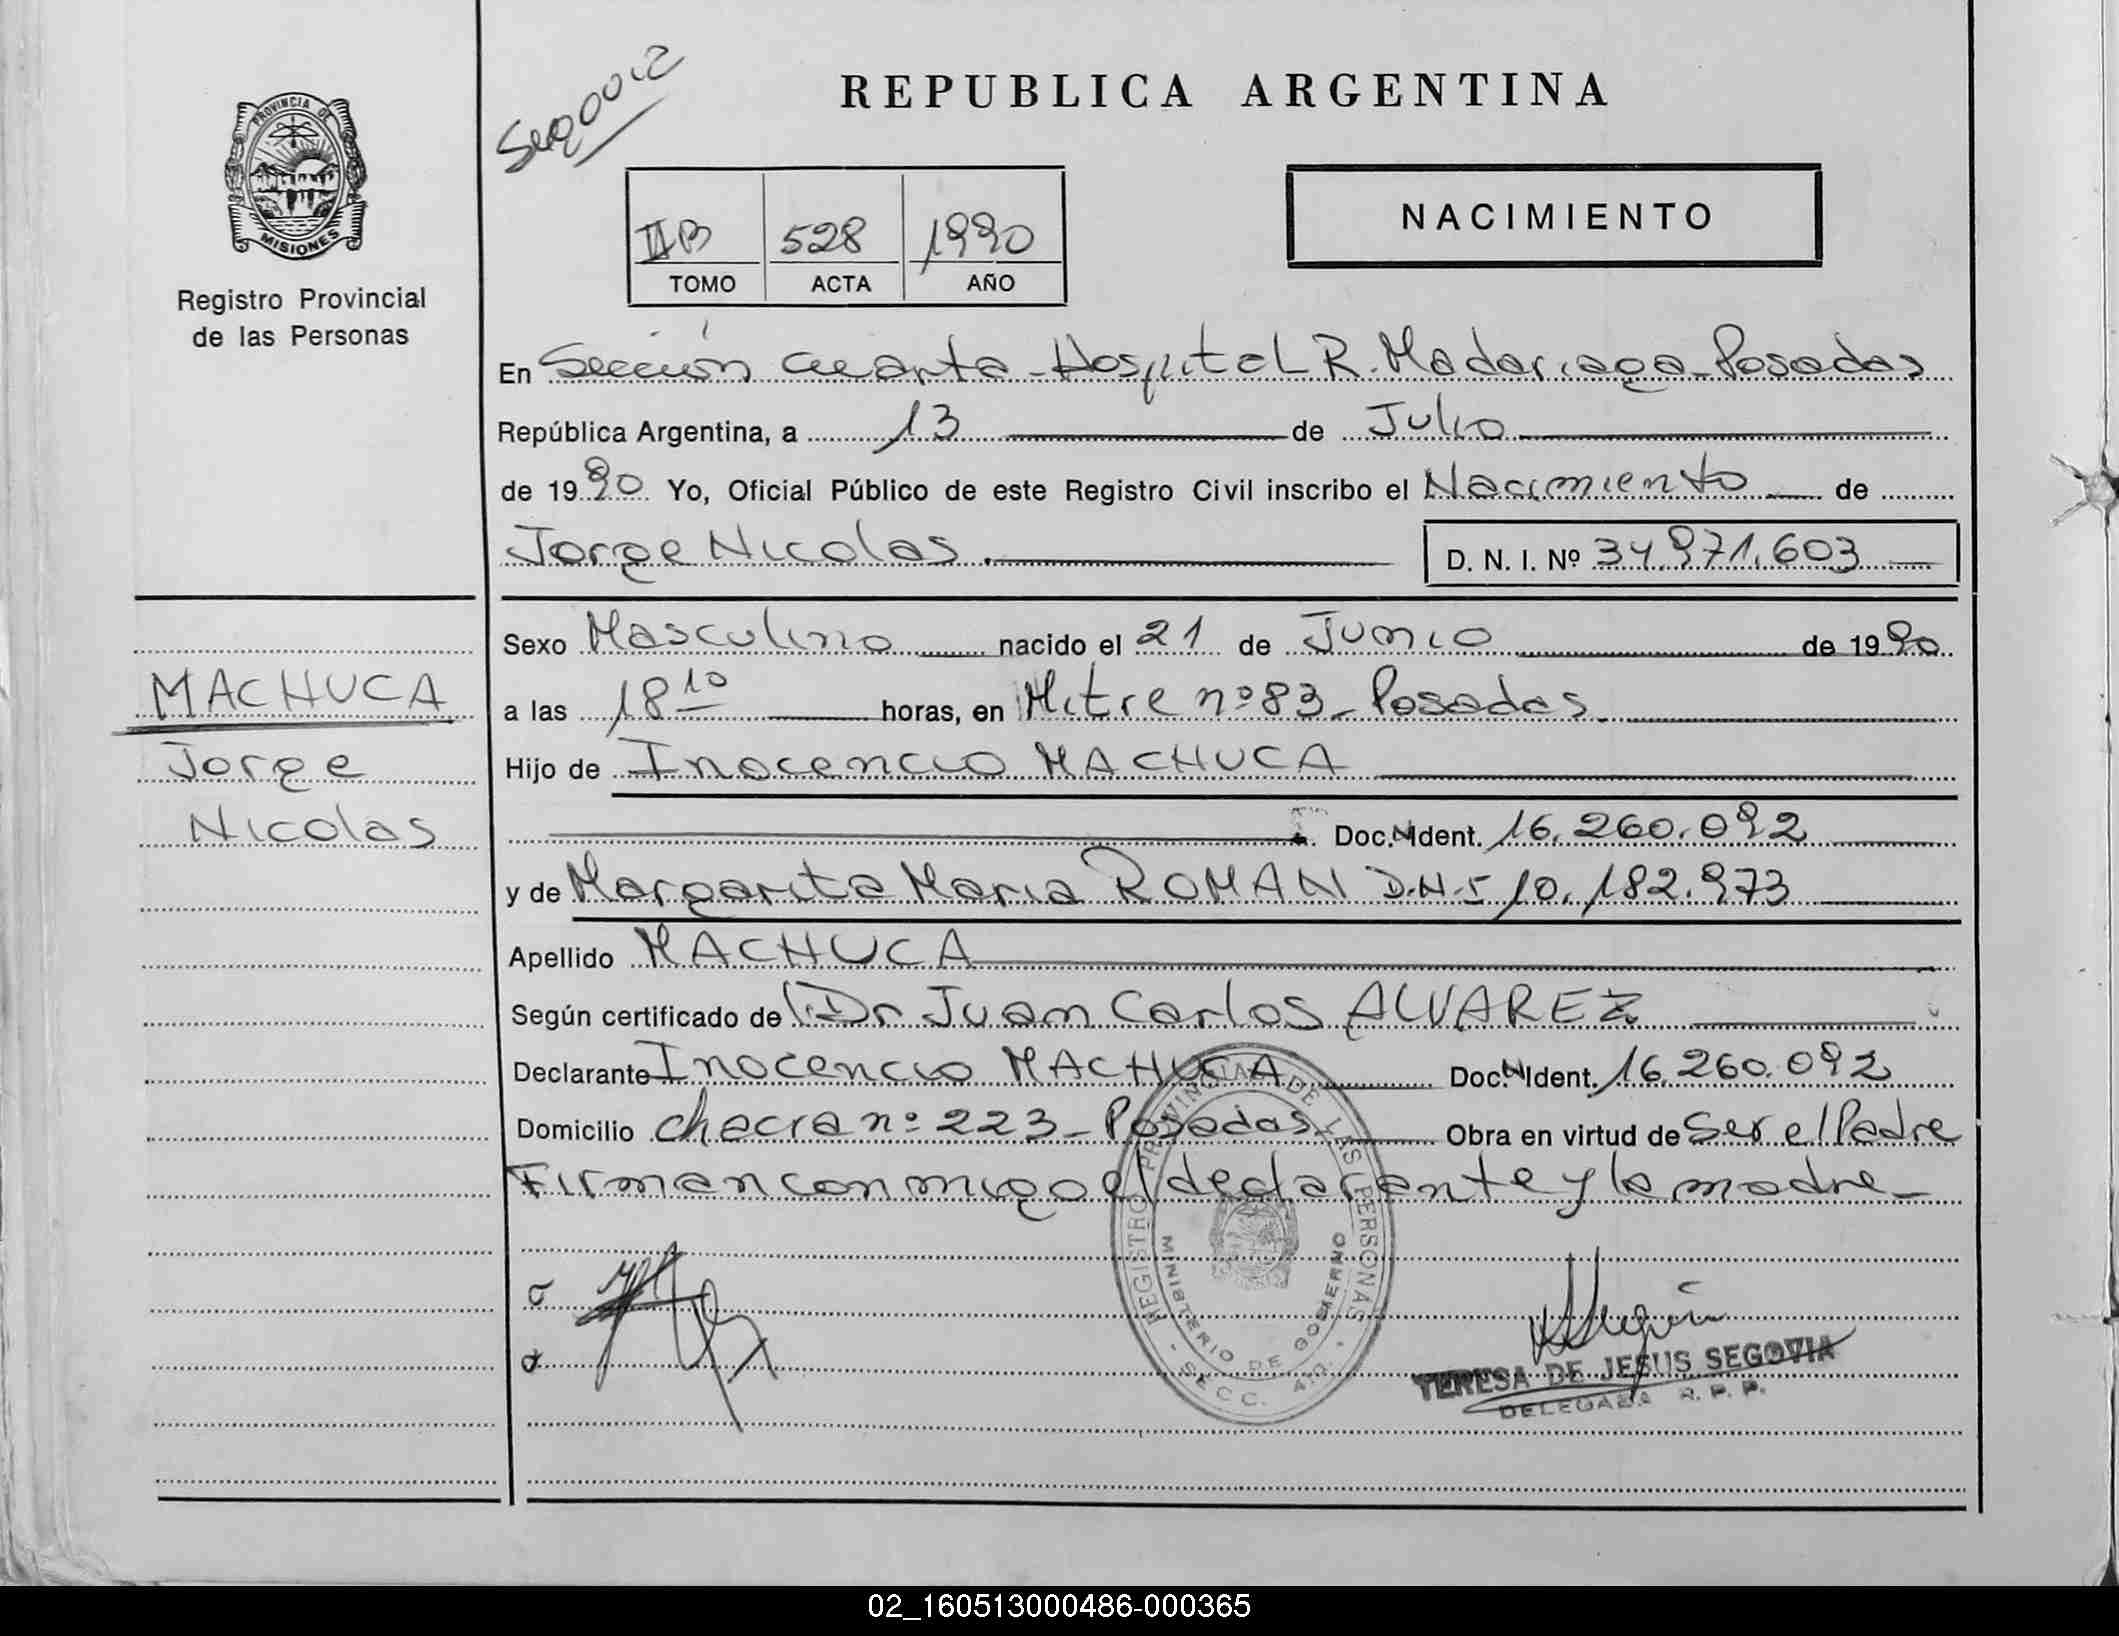 Segovia
REPUBLICA ARGENTINA
PROVINCIA DE
MISIONES
Registro Provincial
de las Personas
IIB 528 1990
TOMO ACTA AÑO
NACIMIENTO
En Sección Cuarta - Hospital R. Madariaga - Posadas
República Argentina, a 13 de Julio
de 1990 Yo, Oficial Público de este Registro Civil inscribo el Nacimiento de
Jorge Nicolas. D. N. I. Nº 34.971.603
Sexo Masculino nacido el 21 de Junio de 1990
MACHUCA
Jorge
Nicolas
a las 18 10 horas, en Mitre nº 83 - Posadas
Hijo de Inocencio MACHUCA
Doc. N Ident. 16.260.092
y de Margarita Maria ROMAN D.N.I 10.182.973
Apellido MACHUCA
Según certificado de Dr Juan Carlos ALVAREZ
Declarante Inocencio MACHUCA Doc. N Ident. 16.260.092
Domicilio chacra nº 223 - Posadas Obra en virtud de Ser el Padre
Firman conmigo el declarante y la madre -
REGISTRO PROVINCIAL DE LAS PERSONAS
MINISTERIO DE GOBIERNO
SECC. 4TA.
TERESA DE JESUS SEGOVIA
DELEGADA R. P. P.
02_160513000486-000365